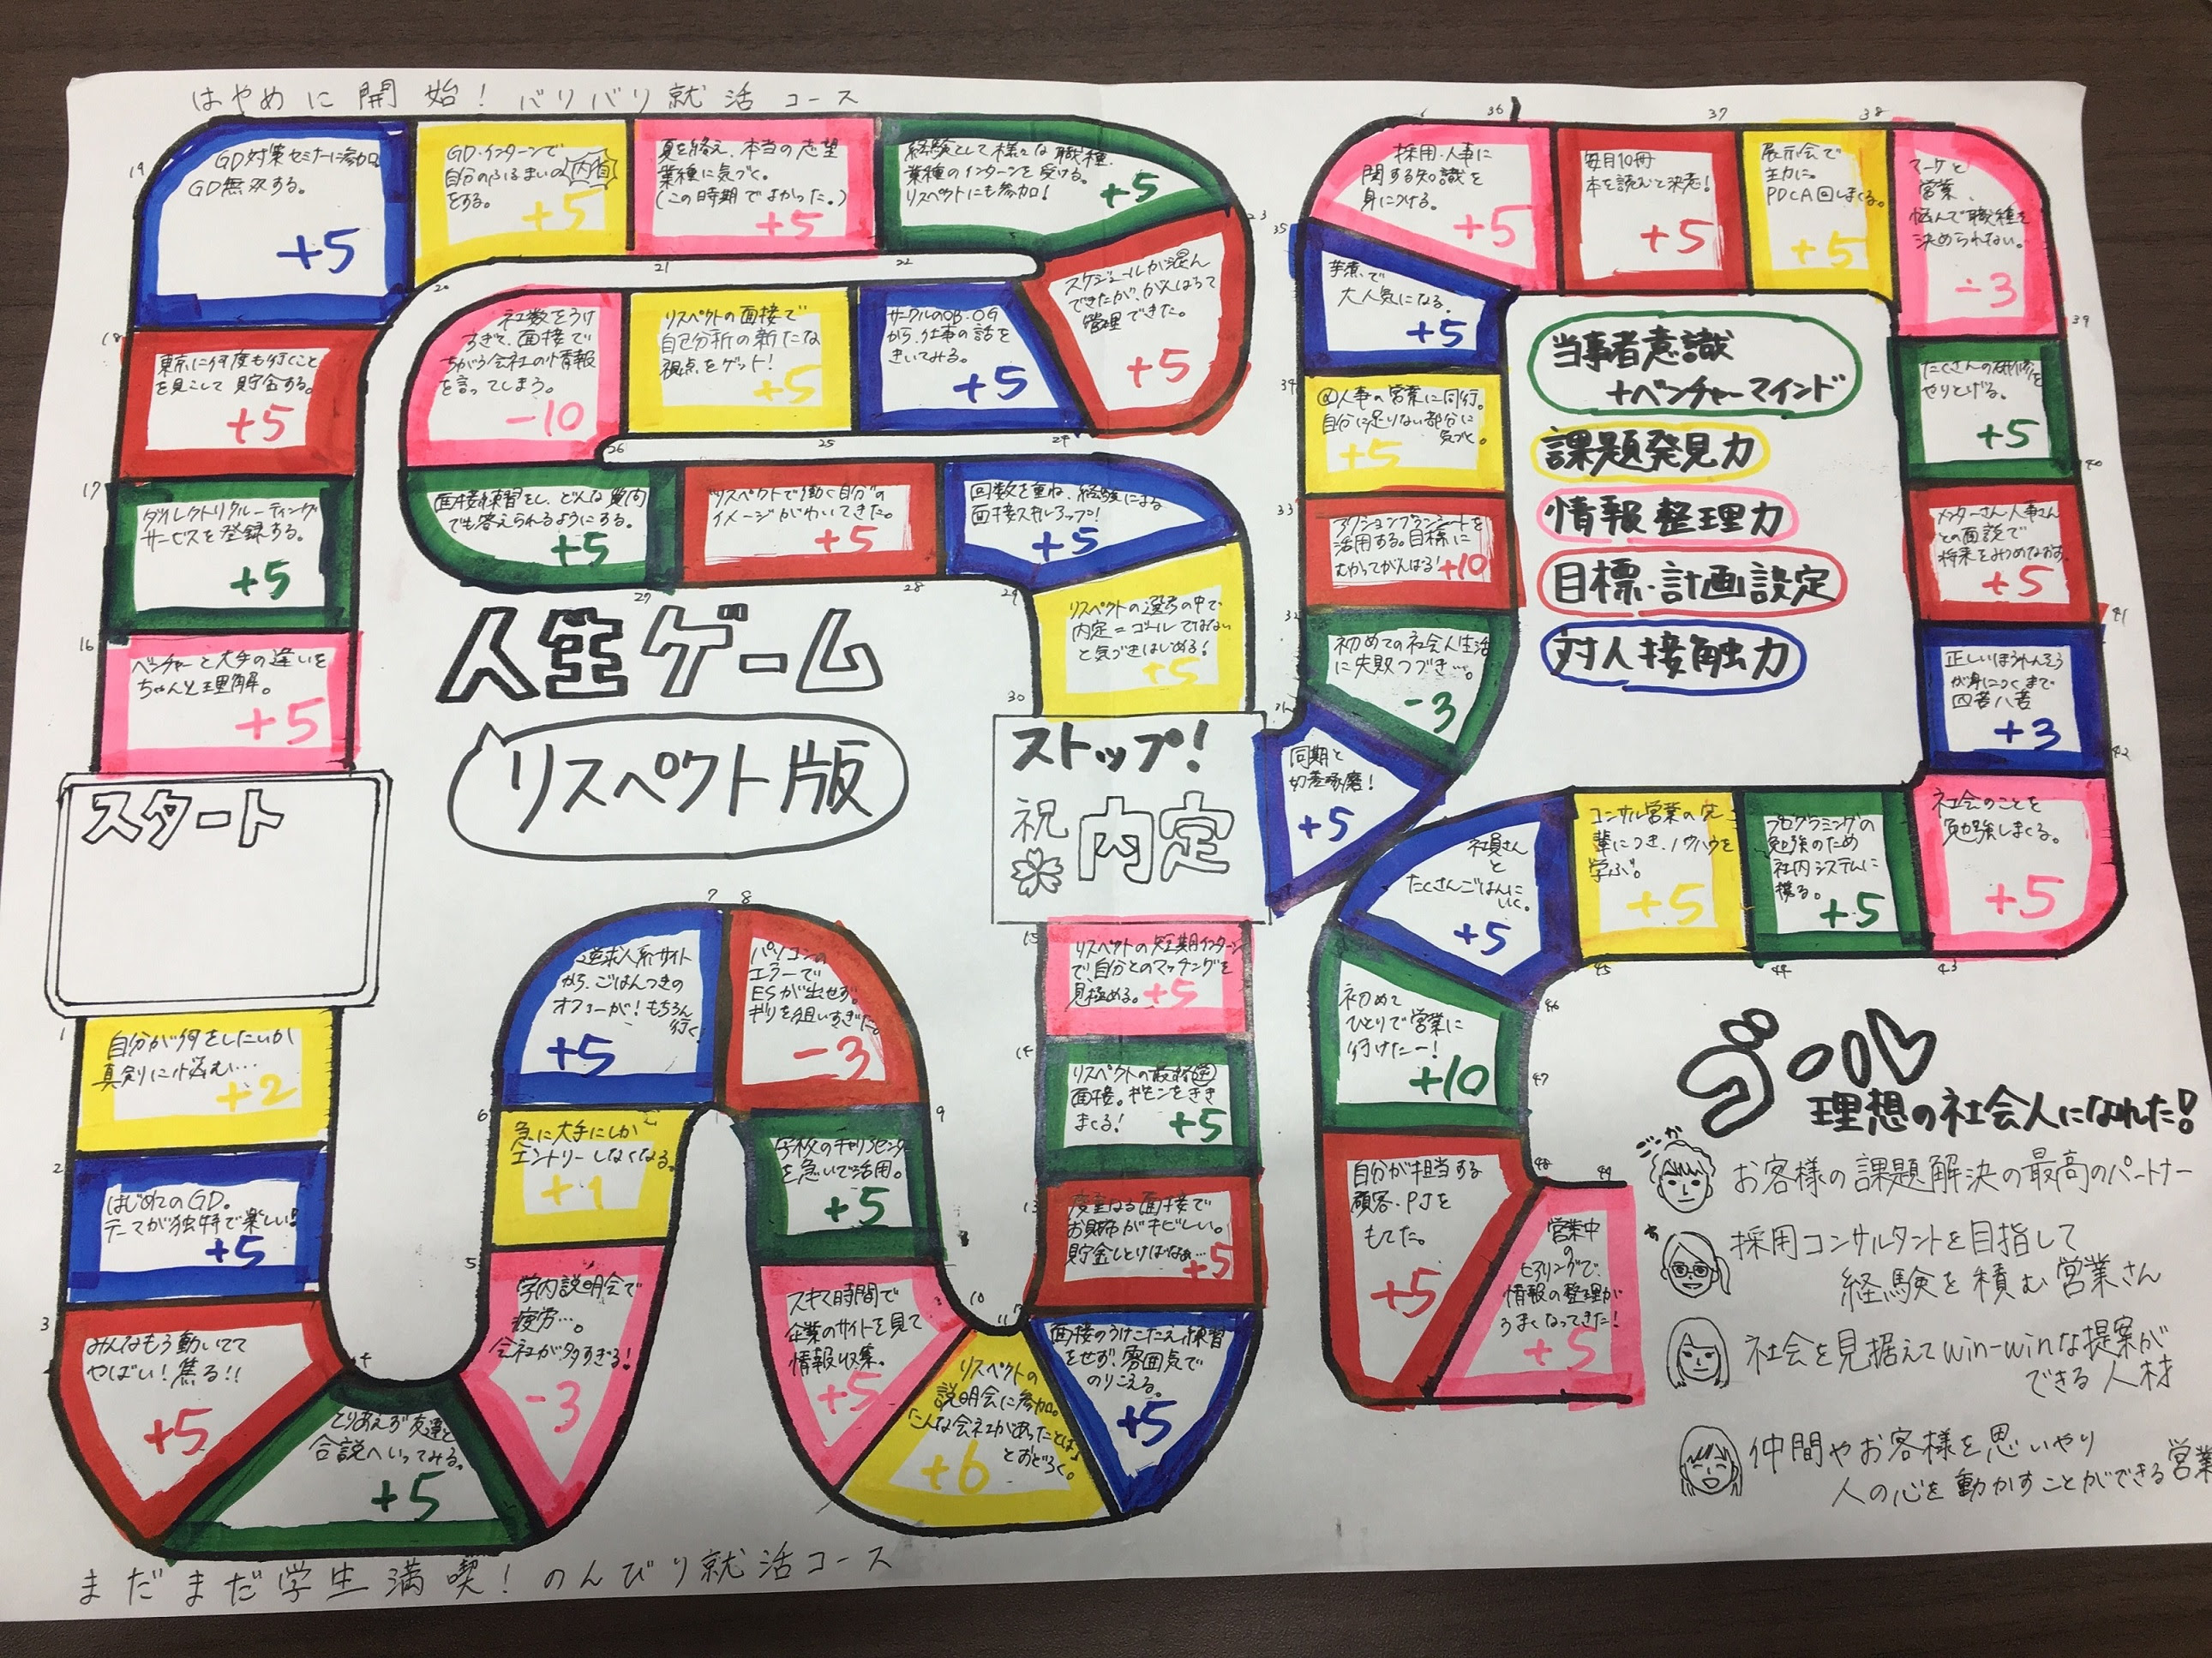 はやめに開始！バリバリ就活コース
19
GD対策セミナーに参加。
GD無双する。
+5
GD・インターンで
自分のふるまいの内省
をする。
+5
20
夏を終え、本当の志望
業種に気づく。
(この時期でよかった。)
+5
21
経験として様々な職種、
業種のインターンを受ける。
リスペクトにも参加！
+5
22
23
スケジュールが混ん
できたが、がんばって
管理できた。
+5
サークルのOB・OG
から、仕事の話を
きいてみる。
+5
24
リスペクトの面接で
自己分析の新たな
視点をゲット！
+5
25
社数をうけ
すぎて、面接で
ちがう会社の情報
を言ってしまう。
-10
26
面接練習をし、どんな質問
でも答えられるようにする。
+5
27
"リスペクトで働く自分"の
イメージがわいてきた。
+5
28
回数を重ね、経験による
面接スキルアップ！
+5
29
リスペクトの選考の中で
内定=ゴールではない
と気づきはじめる！
+5
30
18
東京に何度も行くこと
を見こして貯金する。
+5
17
ダイレクトリクルーティング
サービスを登録する。
+5
16
ベンチャーと大手の違いを
ちゃんと理解。
+5
スタート
人生ゲーム
リスペクト版
ストップ！
祝
内定
1
自分が何をしたいか
真剣に悩む…
+2
2
はじめてのGD。
テーマが独特で楽しい！
+5
3
みんなもう動いてて
やばい！焦る！！
+5
4
とりあえず友達と
合説へいってみる。
+5
5
学内説明会で
疲労…。
会社が多すぎる！
-3
6
急に大手にしか
エントリーしなくなる。
+1
7
逆求人系サイト
から、ごはんつきの
オファーが！もちろん
行く
+5
8
パソコンの
エラーで
ESが出せず。
ギリを狙いすぎた。
-3
9
学校のキャリアセンター
を急いで活用。
+5
スキマ時間で
企業のサイトを見て
情報収集。
+5
10
リスペクトの
説明会に参加。
「こんな会社があったとは」
とおどろく。
+6
11
面接のうけこたえ練習
をせず、雰囲気で
のりこえる。
+5
13
度重なる面接で
お財布がキビしい。
貯金しとけばなぁ…
+5
14
リスペクトの最終
面接。ギモンをきき
まくる！
+5
15
リスペクトの短期インターン
で自分とのマッチングを
見極める。
+5
まだまだ学生満喫！のんびり就活コース
31
同期と
切磋琢磨！
+5
32
初めての社会人生活
に失敗つづき…。
-3
33
アクションプランシートを
活用する。目標に
むかってがんばる！
+10
34
@人事の営業に同行。
自分に足りない部分に
気づく。
+5
35
芋煮で
大人気になる。
+5
採用・人事に
関する知識を
身につける。
+5
36
毎月10冊
本を読むと決意！
+5
37
展示会で
主力に。
PDCA回しまくる。
+5
38
マーケと
営業、
悩んで職種を
決められない。
-3
39
たくさんの研修を
やりとげる。
+5
40
メンターさん・人事さん
との面談で
将来をみつめなおす。
+5
41
正しいほうれんそう
が身につくまで
四苦八苦
+3
42
社会のことを
勉強しまくる。
+5
43
プログラミングの
勉強のため
社内システムに
携る。
+5
44
コンサル営業の先
輩につき、ノウハウを
学ぶ。
+5
45
社員さん
と
たくさんごはんに
いく。
+5
46
初めて
ひとりで営業に
行けたー！
+10
47
自分が担当する
顧客・PJを
もてた。
+5
48
49
営業中
の
ヒアリングで、
情報の整理が
うまくなってきた！
+5
当事者意識
+ベンチャーマインド
課題発見力
情報整理力
目標・計画設定
対人接触力
ゴール
理想の社会人になれた！
お客様の課題解決の最高のパートナー
採用コンサルタントを目指して
経験を積む営業さん
社会を見据えてwin-winな提案が
できる人材
仲間やお客様を思いやり
人の心を動かすことができる営業